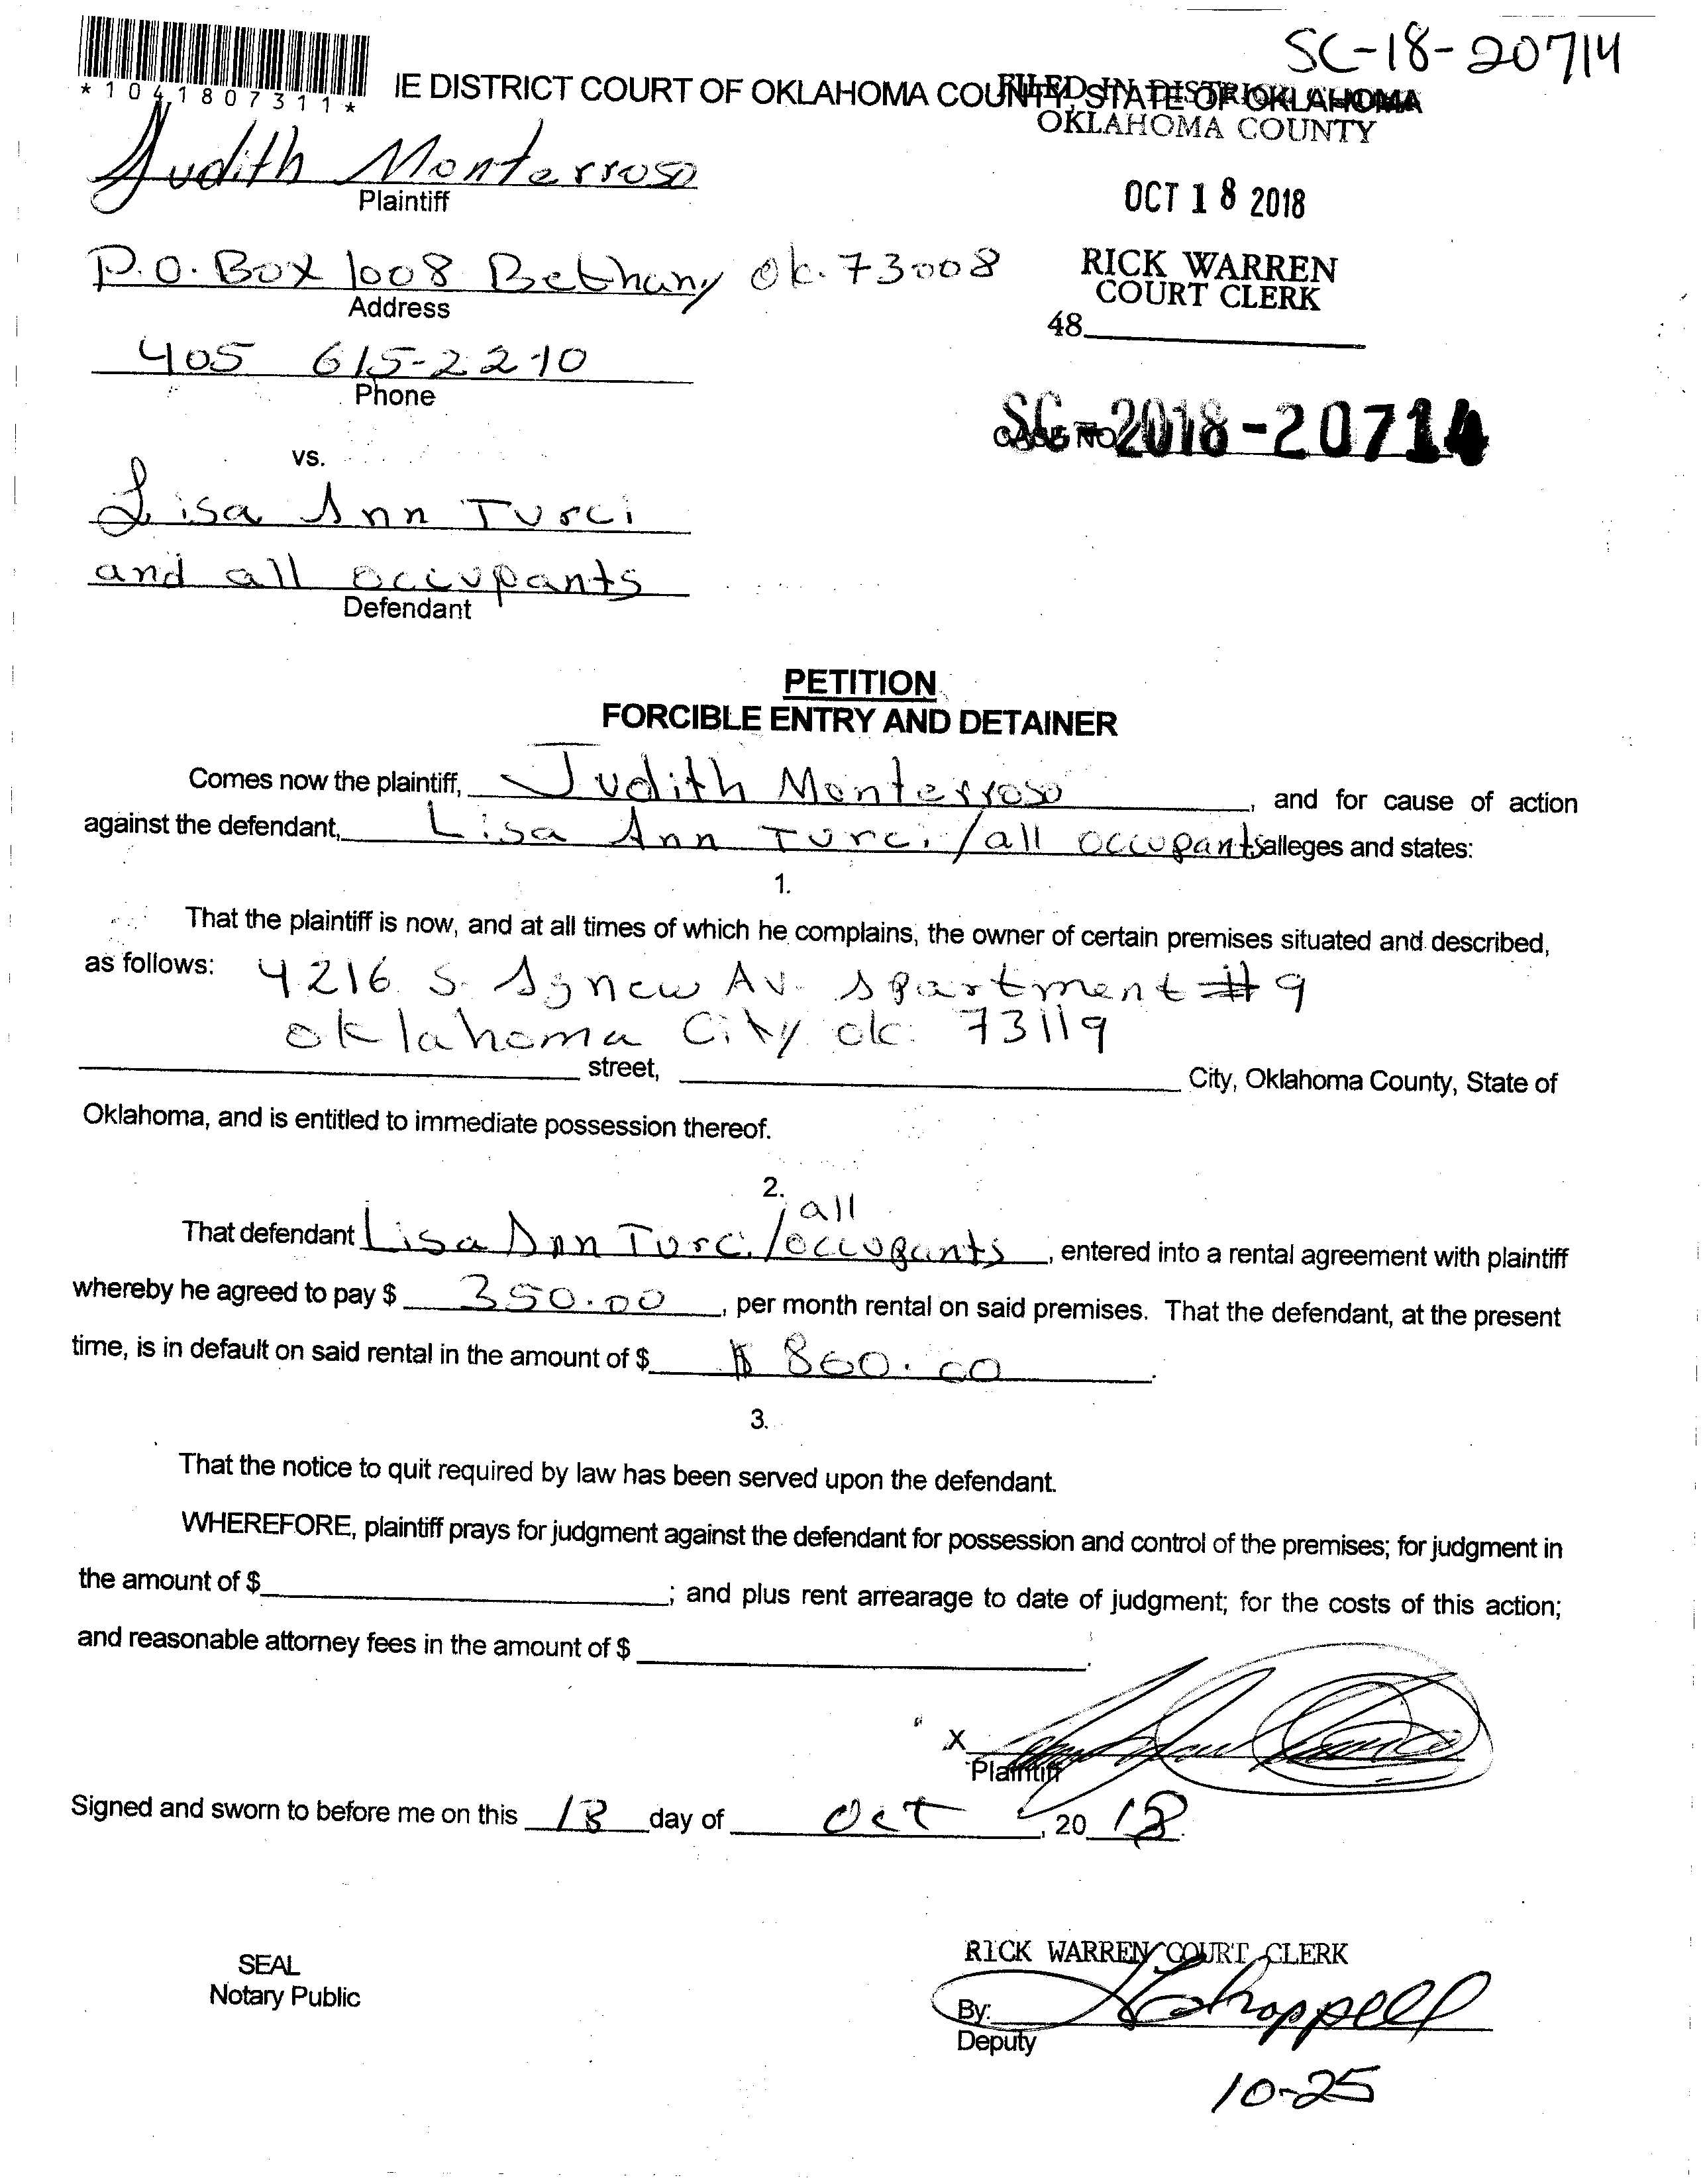 SC-18-20714
*1041807311*
IE DISTRICT COURT OF OKLAHOMA COUNTY, STATE OF OKLAHOMA
FILED IN DISTRICT
OKLAHOMA COUNTY
Judith Monterroso
Plaintiff
OCT 18 2018
P.O. Box 1008 Bethany Ok. 73008
Address
RICK WARREN
COURT CLERK
48
405 615-2210
Phone
SC-2018-20714
CASE NO.
vs.
Lisa Ann Turci
and all occupants
Defendant
PETITION
FORCIBLE ENTRY AND DETAINER
Comes now the plaintiff, Judith Monterroso, and for cause of action
against the defendant, Lisa Ann Turci /all occupants alleges and states:
1.
That the plaintiff is now, and at all times of which he complains, the owner of certain premises situated and described,
as follows: 4216 S. Agnew Av. Apartment #9
Oklahoma City ok. 73119
street, City, Oklahoma County, State of
Oklahoma, and is entitled to immediate possession thereof.
2.
all
That defendant Lisa Ann Turci /occupants, entered into a rental agreement with plaintiff
whereby he agreed to pay $ 350.00, per month rental on said premises. That the defendant, at the present
time, is in default on said rental in the amount of $ $ 860.00.
3.
That the notice to quit required by law has been served upon the defendant.
WHEREFORE, plaintiff prays for judgment against the defendant for possession and control of the premises; for judgment in
the amount of $ ; and plus rent arrearage to date of judgment; for the costs of this action;
and reasonable attorney fees in the amount of $ .
X
Plaintiff
Signed and sworn to before me on this 18 day of Oct, 20 18.
SEAL
Notary Public
RICK WARREN COURT CLERK
By: Chappell
Deputy
10-25